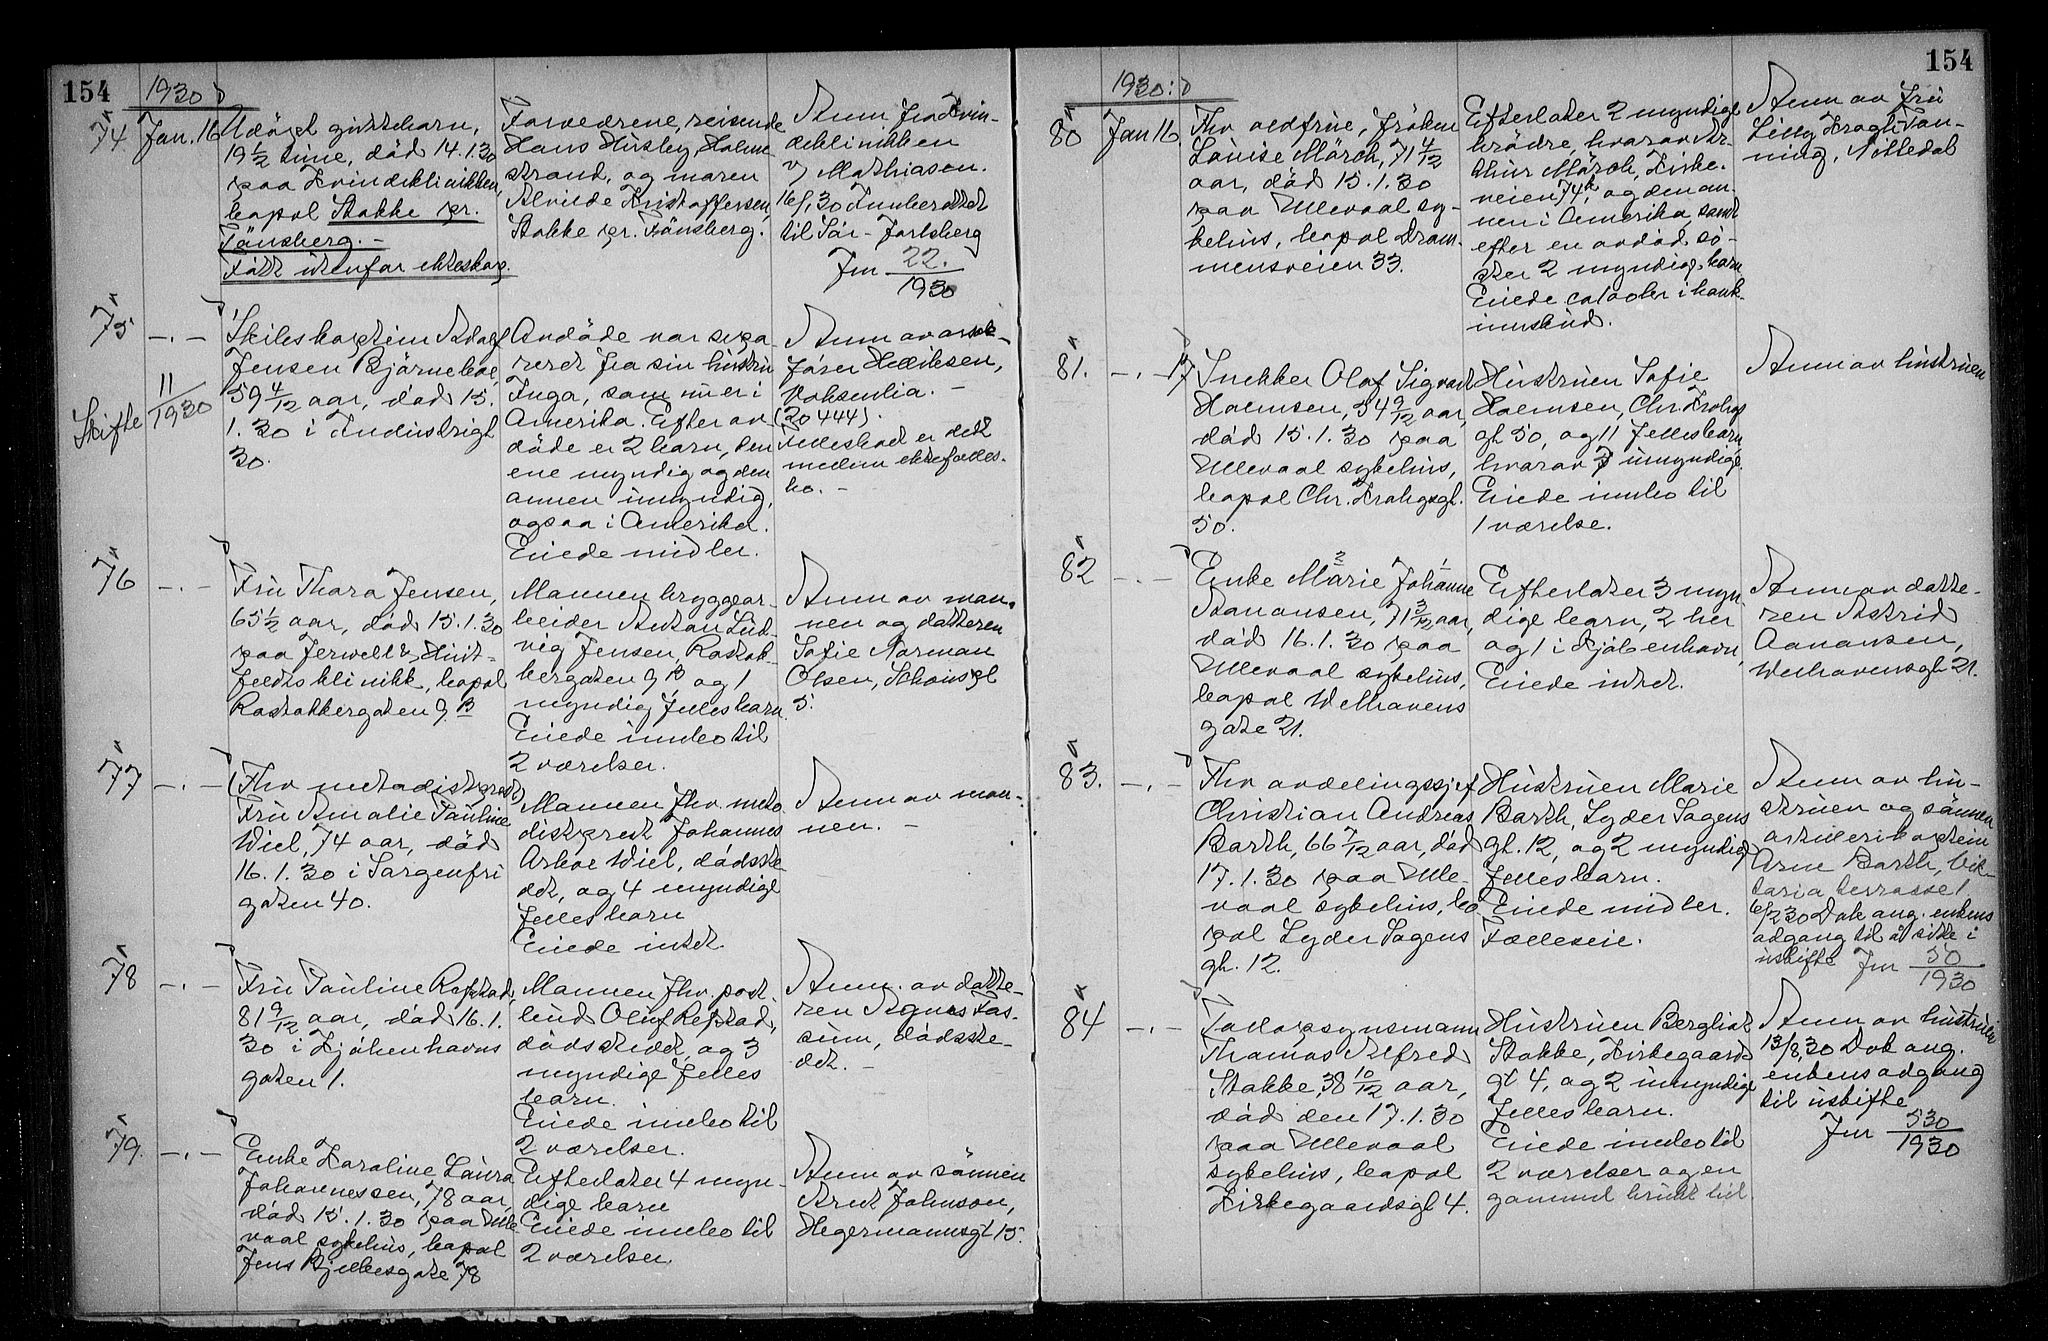 154
1930
74 Jan. 16
Udöpt guttebarn,
19 1/2 time, död 14.1.30
paa Kvindeklinikken,
bopæl Stokke pr.
Tönsberg. -
Født utenfor ekteskap.
Forældrene, reisende
Hans Husby, Holme
strand, og Maren
Alvilde Kristoffersen,
Stokke pr. Tönsberg.
Anm fra Kvin-
deklinikken
v/ Mathiasen.
16/1 30 Innberettet
til Sör-Jarlsberg
Jnr 22.
1930
75 -.-
Skifte 11/1930
Skibskaptein Adolf
Jensen Bjørneboe,
59 4/12 aar, död 15.
1.30 i Industrigt
30.
Avdöde var sepa
rert fra sin hustru
Inga, som nu er i
Amerika. Efter av
döde er 2 barn, den
ene myndig og den
annen umyndig,
ogsaa i Amerika.
Eiede midler.
Anm av
Henriksen,
Voksenlia. -
(20444).
Felleskod er dekk
mellem ektefolle-
ne. -
76 -.-
Fru Thora Jensen,
65 1/2 aar, död 15.1.30
paa Jervell & Huit-
feldts klinikk, bopæl
Rostokkergaten 9 B
Mannen bryggear-
beider Anton Lud-
vig Jensen, Rostok-
kergaten 9 B og 1
myndig fellesbarn.
Eiede innbo til
2 værelser.
Anm av man-
nen og datteren
Sofie Norman
Olsen, Schousgt
5.
77 -.-
Fhv metodistprest
Fru Amalie Pauline
Wiel, 74 aar, död
16.1.30 i Sorgenfri
gaten 40.
Mannen fhv meto
distprest Johannes
Arboe Wiel, dödsste
det, og 4 myndige
fellesbarn
Eiede intet.
Anm av man-
nen. -
78 -.-
Fru Pauline Refstad,
81 9/12 aar, död 16.1.
30 i Kjöbenhavns
gaten 1.
Mannen fhv. post-
bud Oluf Refstad,
dödsstedet, og 3
myndige felles
barn.
Eiede innbo til
2 værelser.
Anm. av datte-
ren Agnes Fos-
sum, dödsste-
det. -
79. -.-
Enke Karoline Laura
Johannessen, 78 aar,
död 15.1.30 paa Ulle
vaal sykehus, bopæl
Jens Bjelkesgate 78
Efterlater 4 myn-
dige barn
Eiede innbo til
2 værelser.
Anm av sönnen
Arnt Johnson,
Hegermannsgt 15.
154
1930:
80 Jan 16.
Fhv oldfrue, fröken
Louise Mörch, 71 4/12
aar, död 15.1.30
paa Ullevaal sy-
kehus, bopæl Dram-
mensveien 33.
Efterlater 2 myndige
brödre, hvorav Ar-
thur Mörch, Kirke-
veien 74b, og den an-
nen i Amerika, samt
efter en avdöd sö-
ster 2 myndige barn.
Eiede catooler i bank-
innskud.
Anm av fru
Lilly Kragh-Tan-
ning, Nittedal
81. -.- 17
Snekker Olaf Sigvart
Holmsen, 54 9/12 aar,
död 15.1.30 paa
Ullevaal sykehus,
bopæl Chr. Krohgsgt.
50.
Hustruen Sofie
Holmsen, Chr. Krohgs
gt. 50, og 11 fellesbarn
hvorav 7 umyndige.
Eiede innbo til
1 værelse.
Anm av hustruen
82 -.-
Enke Marie Johanne
Aanonsen, 71 3/12 aar,
död 16.1.30 paa
Ullevaal sykehus,
bopæl Welhavens
gate 21.
Efterlater 3 myn
dige barn, 2 her
og 1 i Kjöbenhavn,
Eiede intet.
Anm av datte-
ren Astrid
Aanonsen,
Welhavensgt. 21.
83. -.-
Fhv avdelingssjef
Christian Andreas
Barth, 66 7/12 aar, död
17.1.30 paa Ulle-
vaal sykehus, bo
pæl Lyder Sagens
gt. 12.
Hustruen Marie
Barth, Lyder Sagens
gt. 12, og 2 myndige
fellesbarn.
Eiede midler.
Fælleseie.
Anm av hu-
struen og sönnen
artillerikaptein
Arne Barth, Vik-
toria terrasse 1
6/2 30 Dok ang. enkens
adgang til å sitte i
uskifte Jnr 50
1930
84 -.-
Tollopsynsmann
Thomas Alfred
Stokke, 38 10/12 aar,
död den 17.1.30
paa Ullevaal
sykehus, bopæl
Kirkegaardsgt 4.
Hustruen Bergliot
Stokke, Kirkegaards
gt 4, og 2 umyndige
fellesbarn.
Eiede innbo til
2 værelser og en
gammel brukt bil
Anm av hustruen
13/8, 30 Dok ang.
enkens adgang
til uskifte
Jnr 530
1930